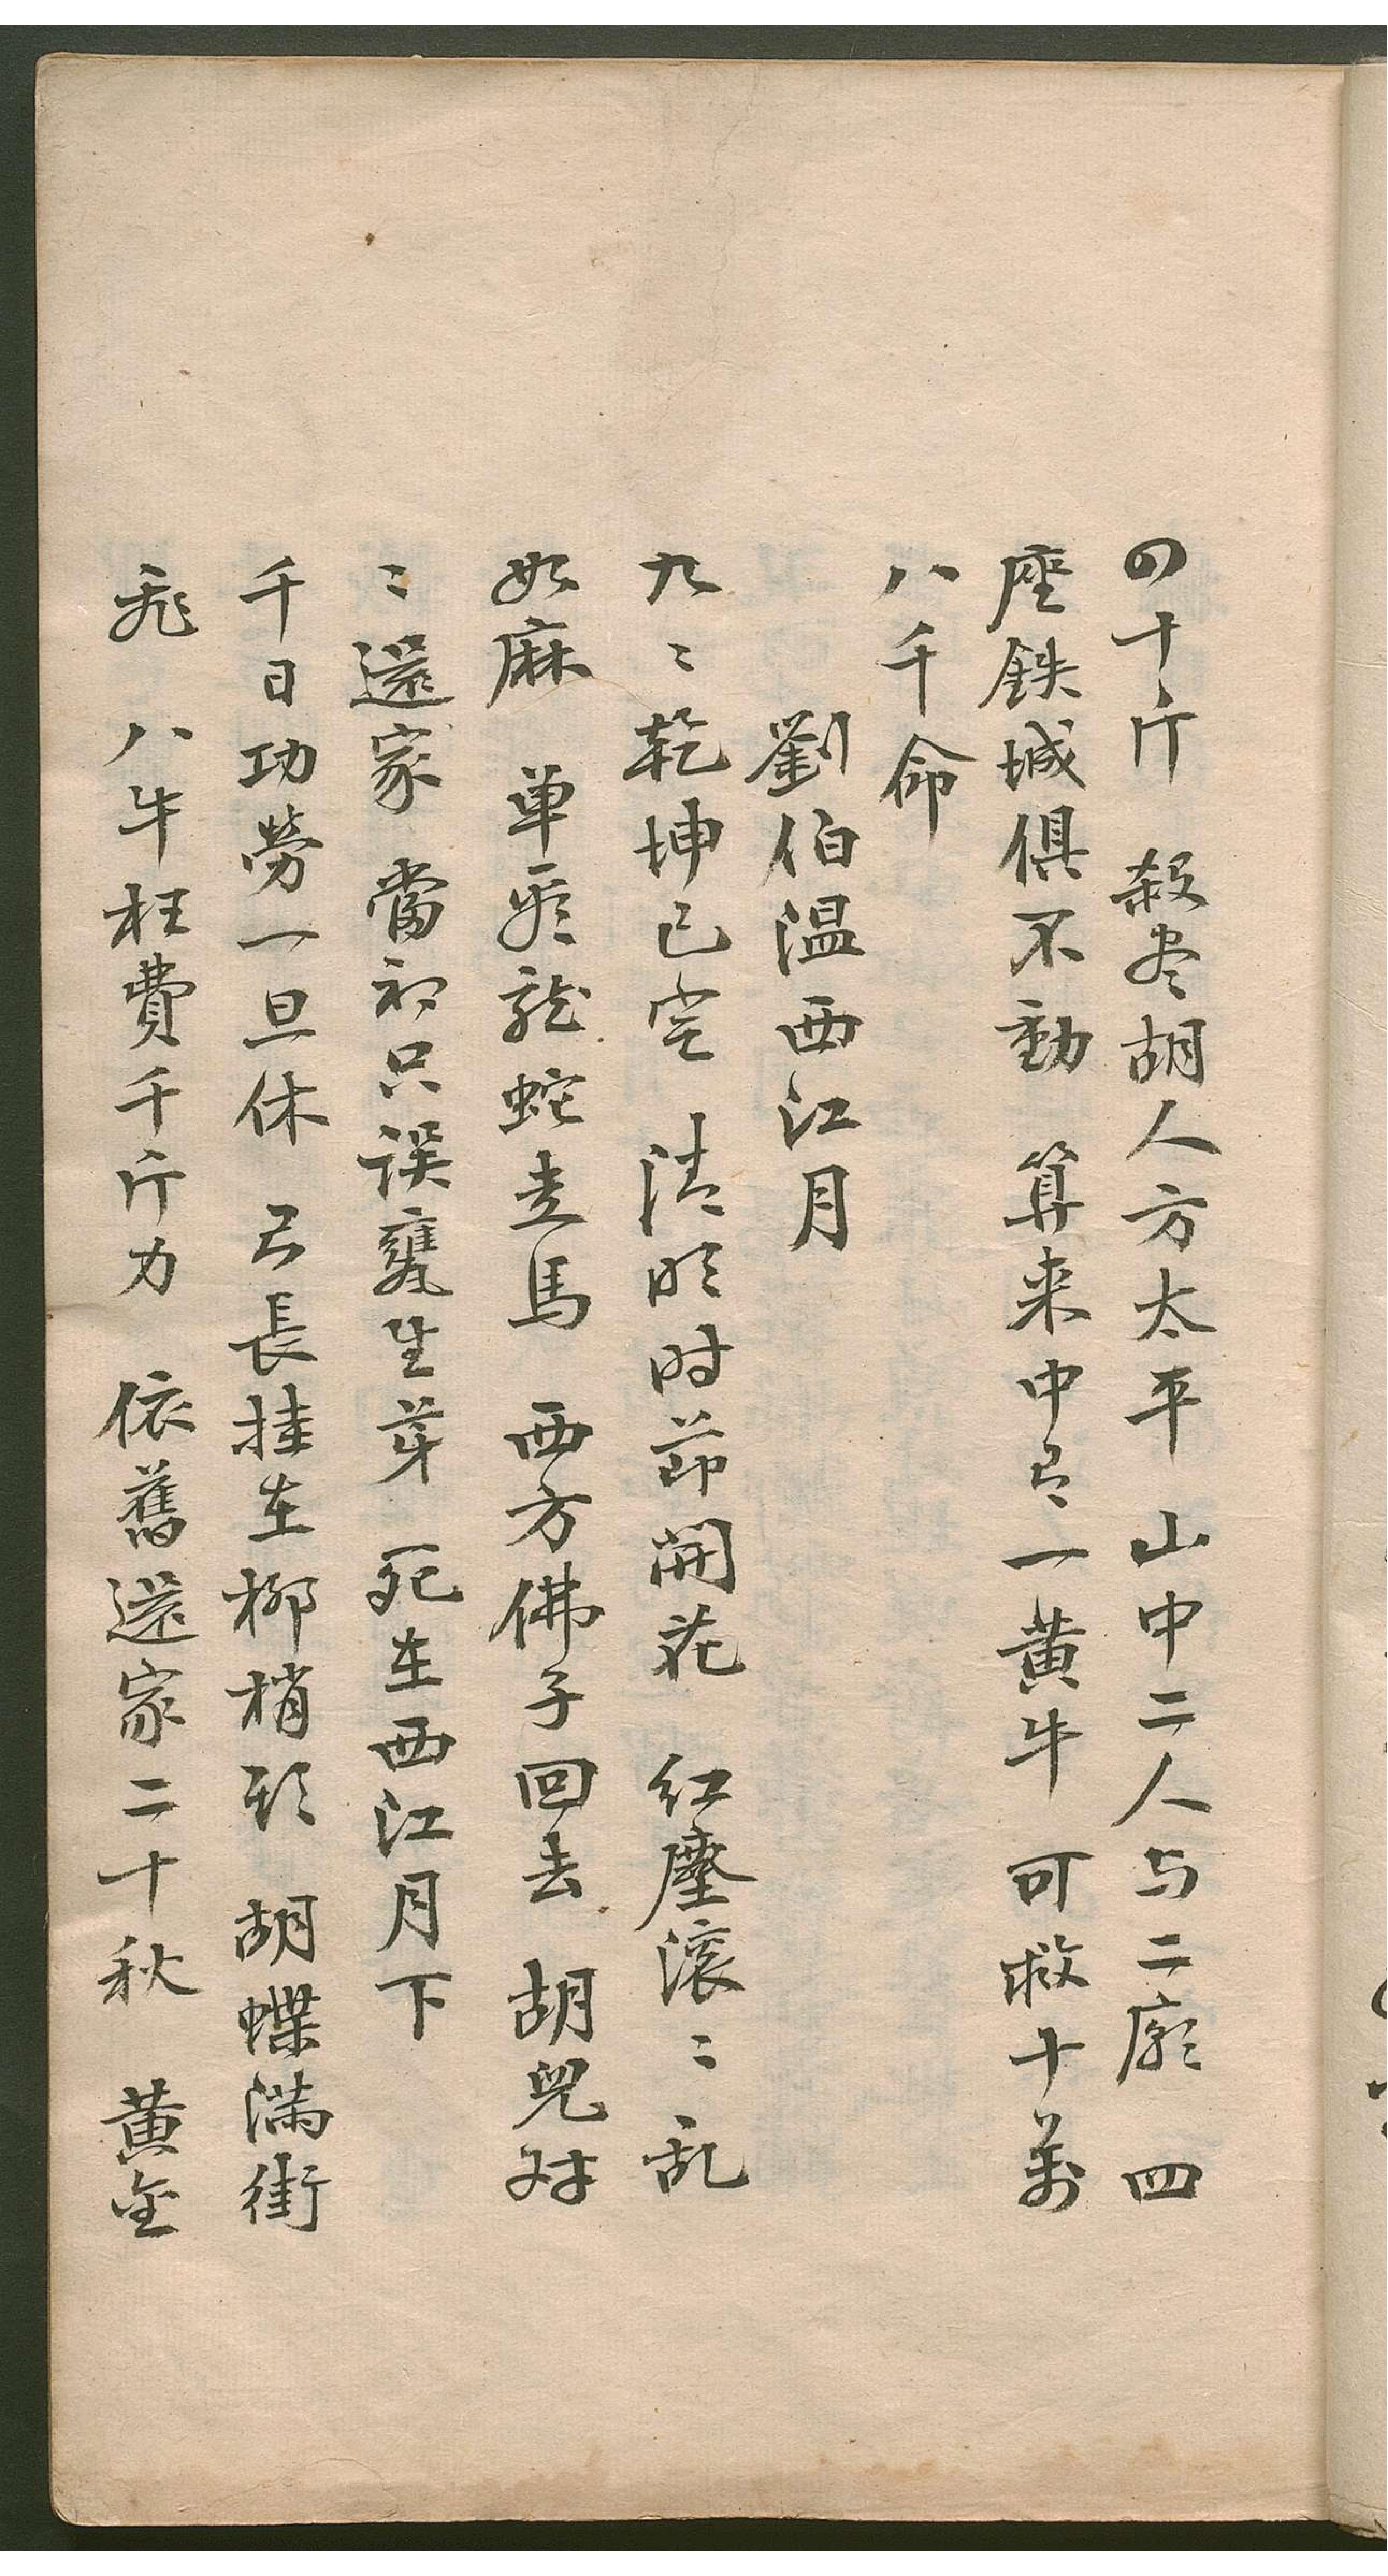 四十斤　殺尽胡人方太平　山中二人与二廟　四
座鉄城俱不動　算来中弓一黄牛　可救十萬
八千命
劉伯温西江月
九〻乾坤已定　清明时節開花　紅塵滾〻乱
如麻　单爾龍蛇走馬　西方佛子回去　胡兒对
〻還家　當初只誤甕生芽　死在西江月下
千日功勞一旦休　弓長挂在柳梢頭　胡蝶満街
飛　八牛枉費千斤力　依舊還家二十秋　黄金